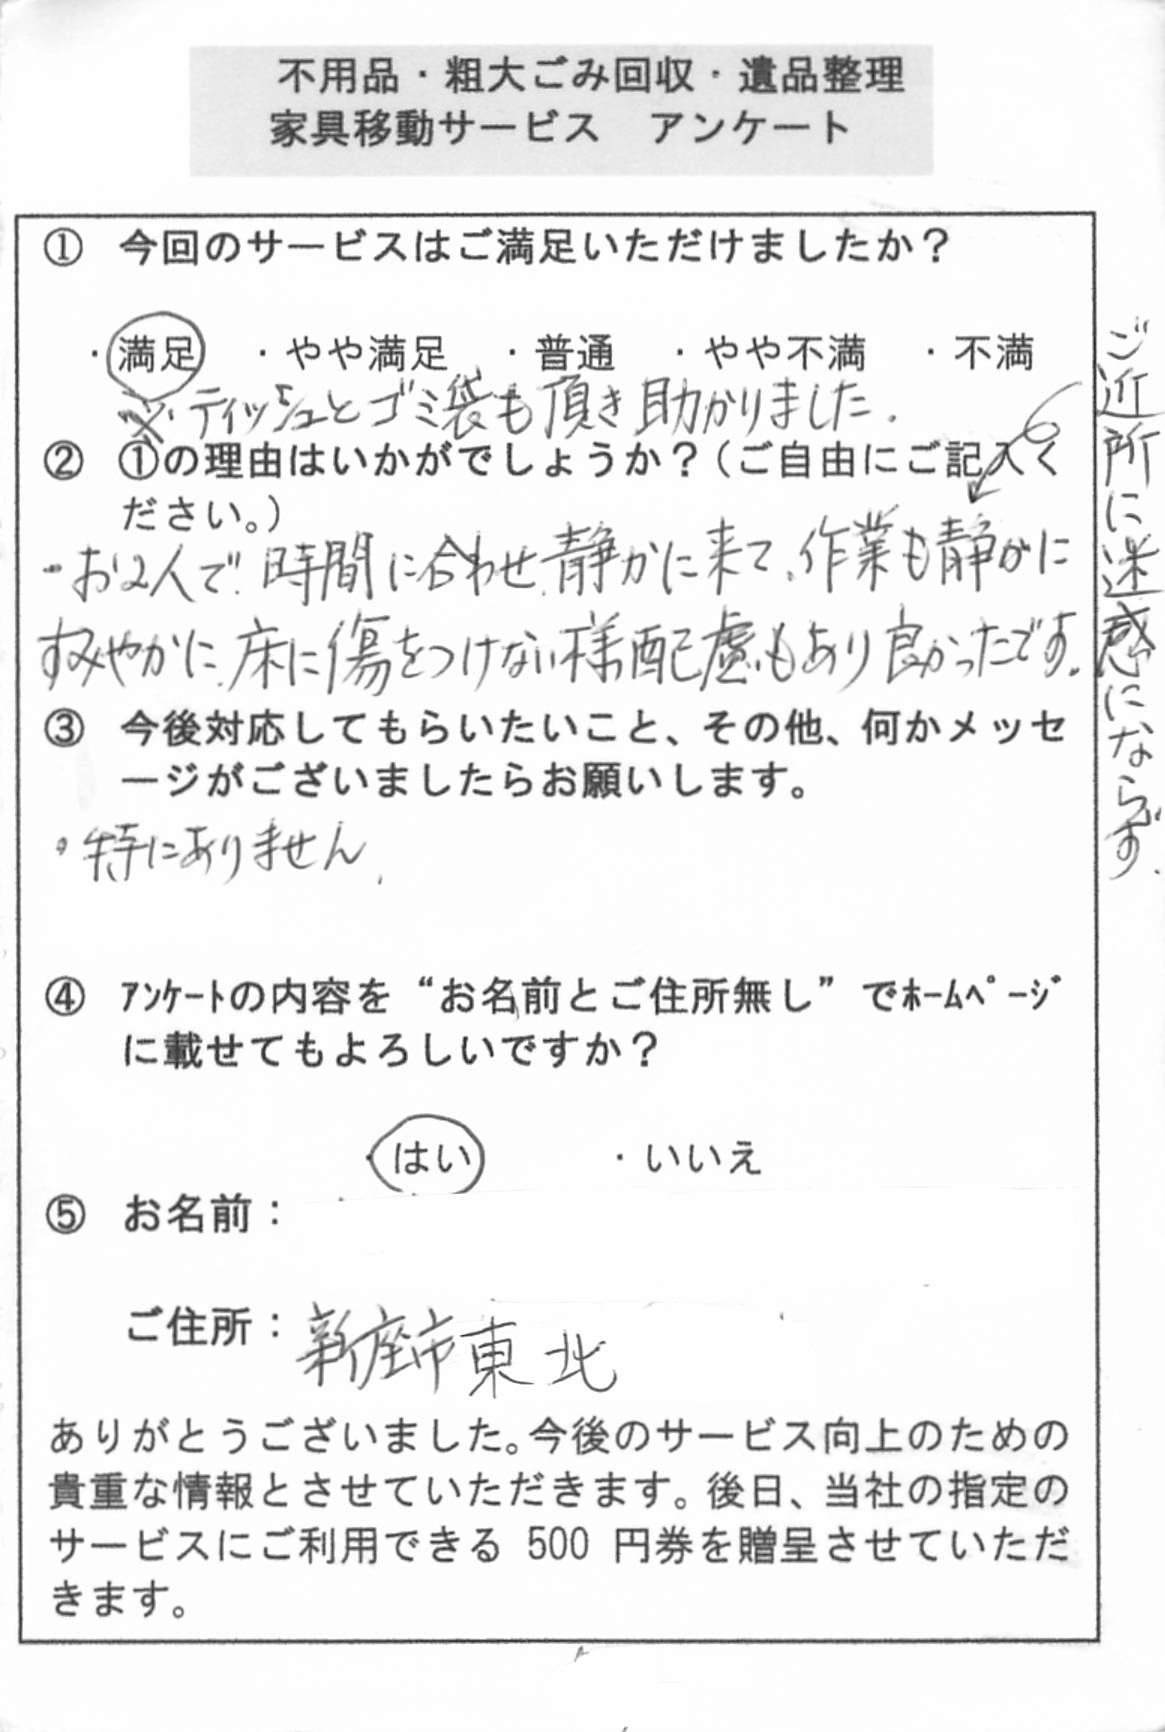 不用品・粗大ごみ回収・遺品整理
家具移動サービス　アンケート
① 今回のサービスはご満足いただけましたか？
・満足 ・やや満足 ・普通 ・やや不満 ・不満
※・ティッシュとゴミ袋も頂き助かりました．
② ①の理由はいかがでしょうか？（ご自由にご記入く
ださい。）
・お2人で、時間に合わせ、静かに来て、作業も静かに
すみやかに、床に傷をつけない様配慮もあり良かったです。
ご近所に迷惑にならず、
③ 今後対応してもらいたいこと、その他、何かメッセ
ージがございましたらお願いします。
・特にありません、
④ ｱﾝｹｰﾄの内容を“お名前とご住所無し”でﾎｰﾑﾍﾟｰｼﾞ
に載せてもよろしいですか？
・はい ・いいえ
⑤ お名前：
ご住所：新座市東北
ありがとうございました。今後のサービス向上のための
貴重な情報とさせていただきます。後日、当社の指定の
サービスにご利用できる 500 円券を贈呈させていただ
きます。